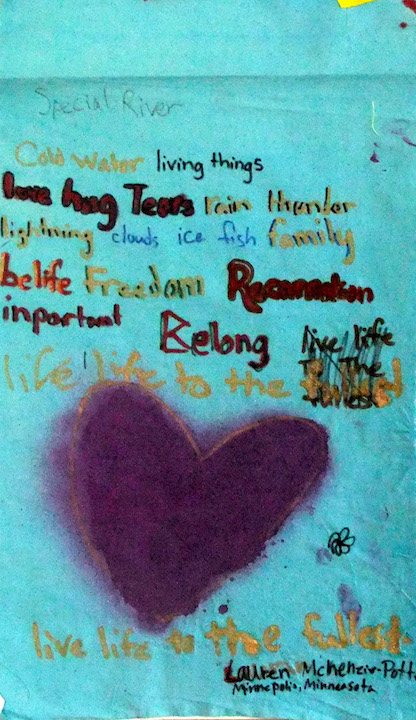 Special River
Cold water living things
love hug Tears rain thunder
lightning clouds ice fish family
belife Freedom Recarnation
inportant Belong live life
to the
fullest
live life to the fulled
live life to thoe fullest
Lauren McKenzie-Potts
Minnepolis, Minneasota